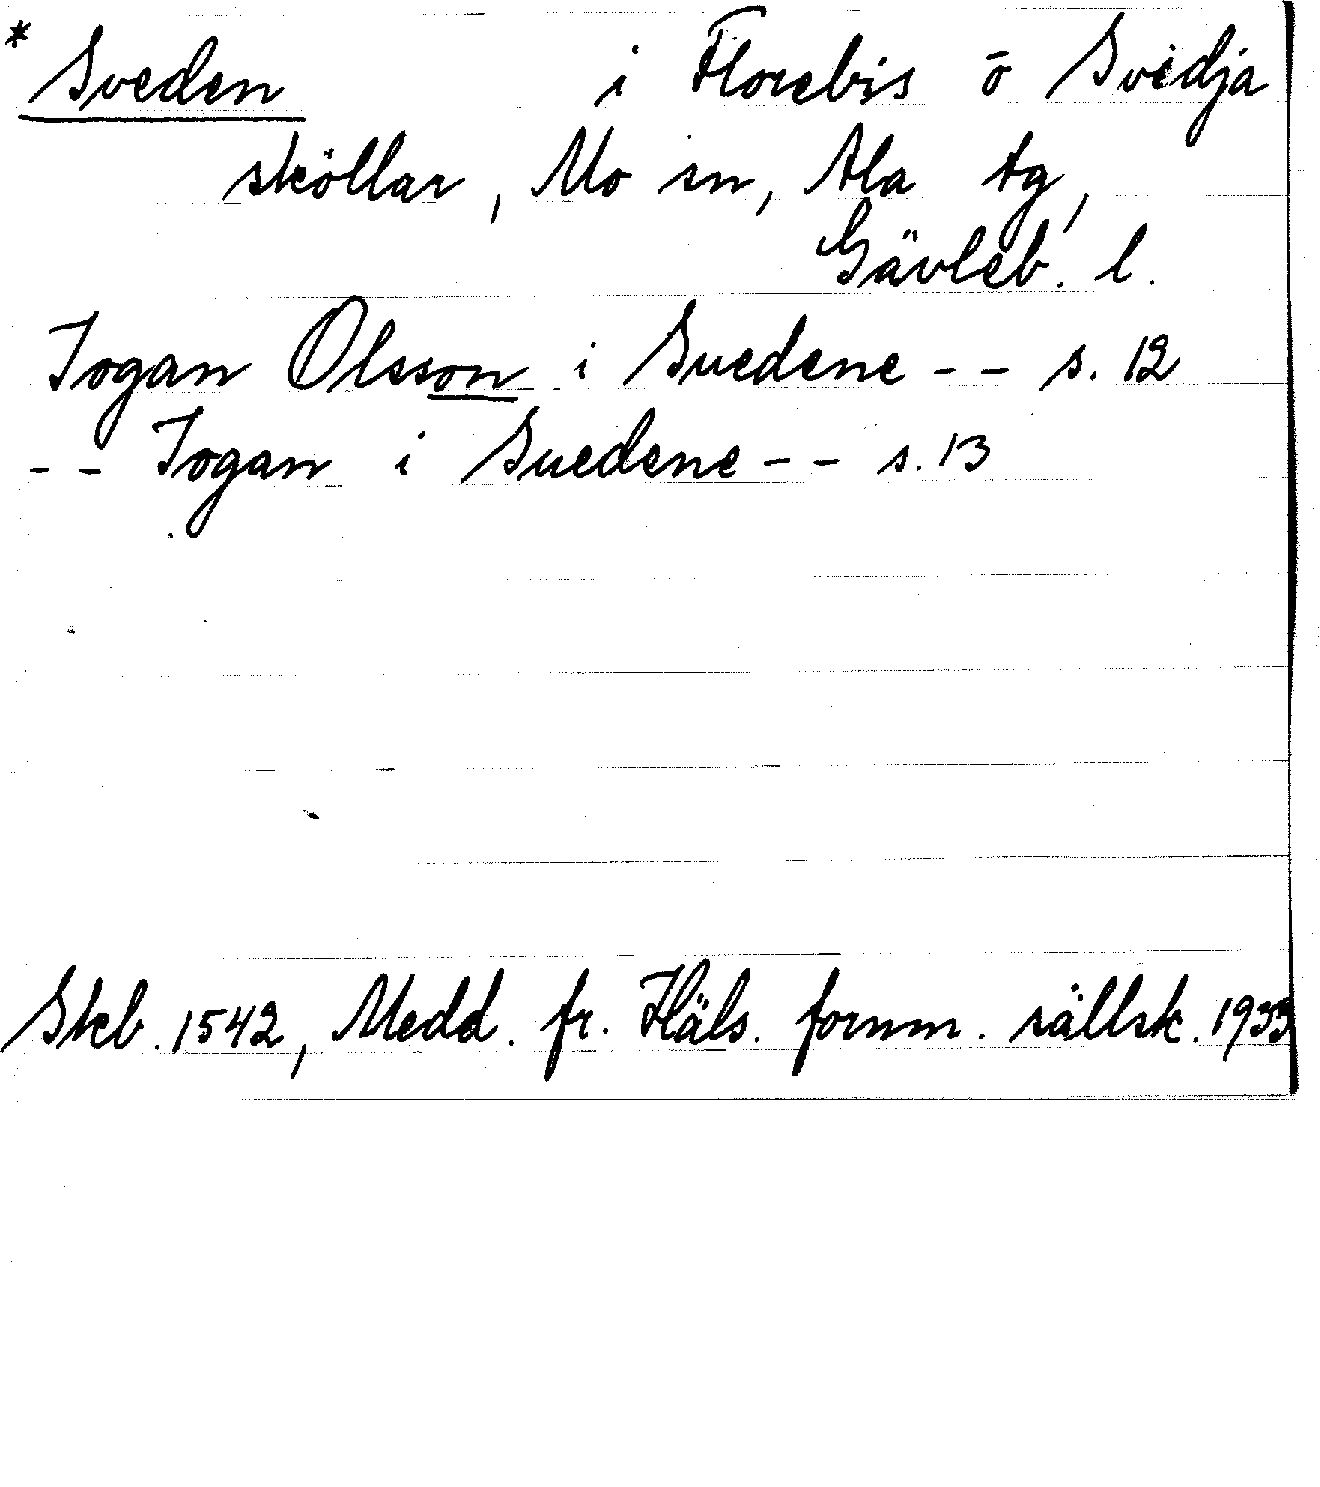 * Sveden i Florebis ō Svedja
sköllar, Mo sn, Ala tg,
Gävleb. l.
Jogan Olsson i Suedene - - s. 12
- - Jogan i Suedene - - s. 13
Skb. 1542, Medd. fr. Häls. fornm. sällsk. 1933